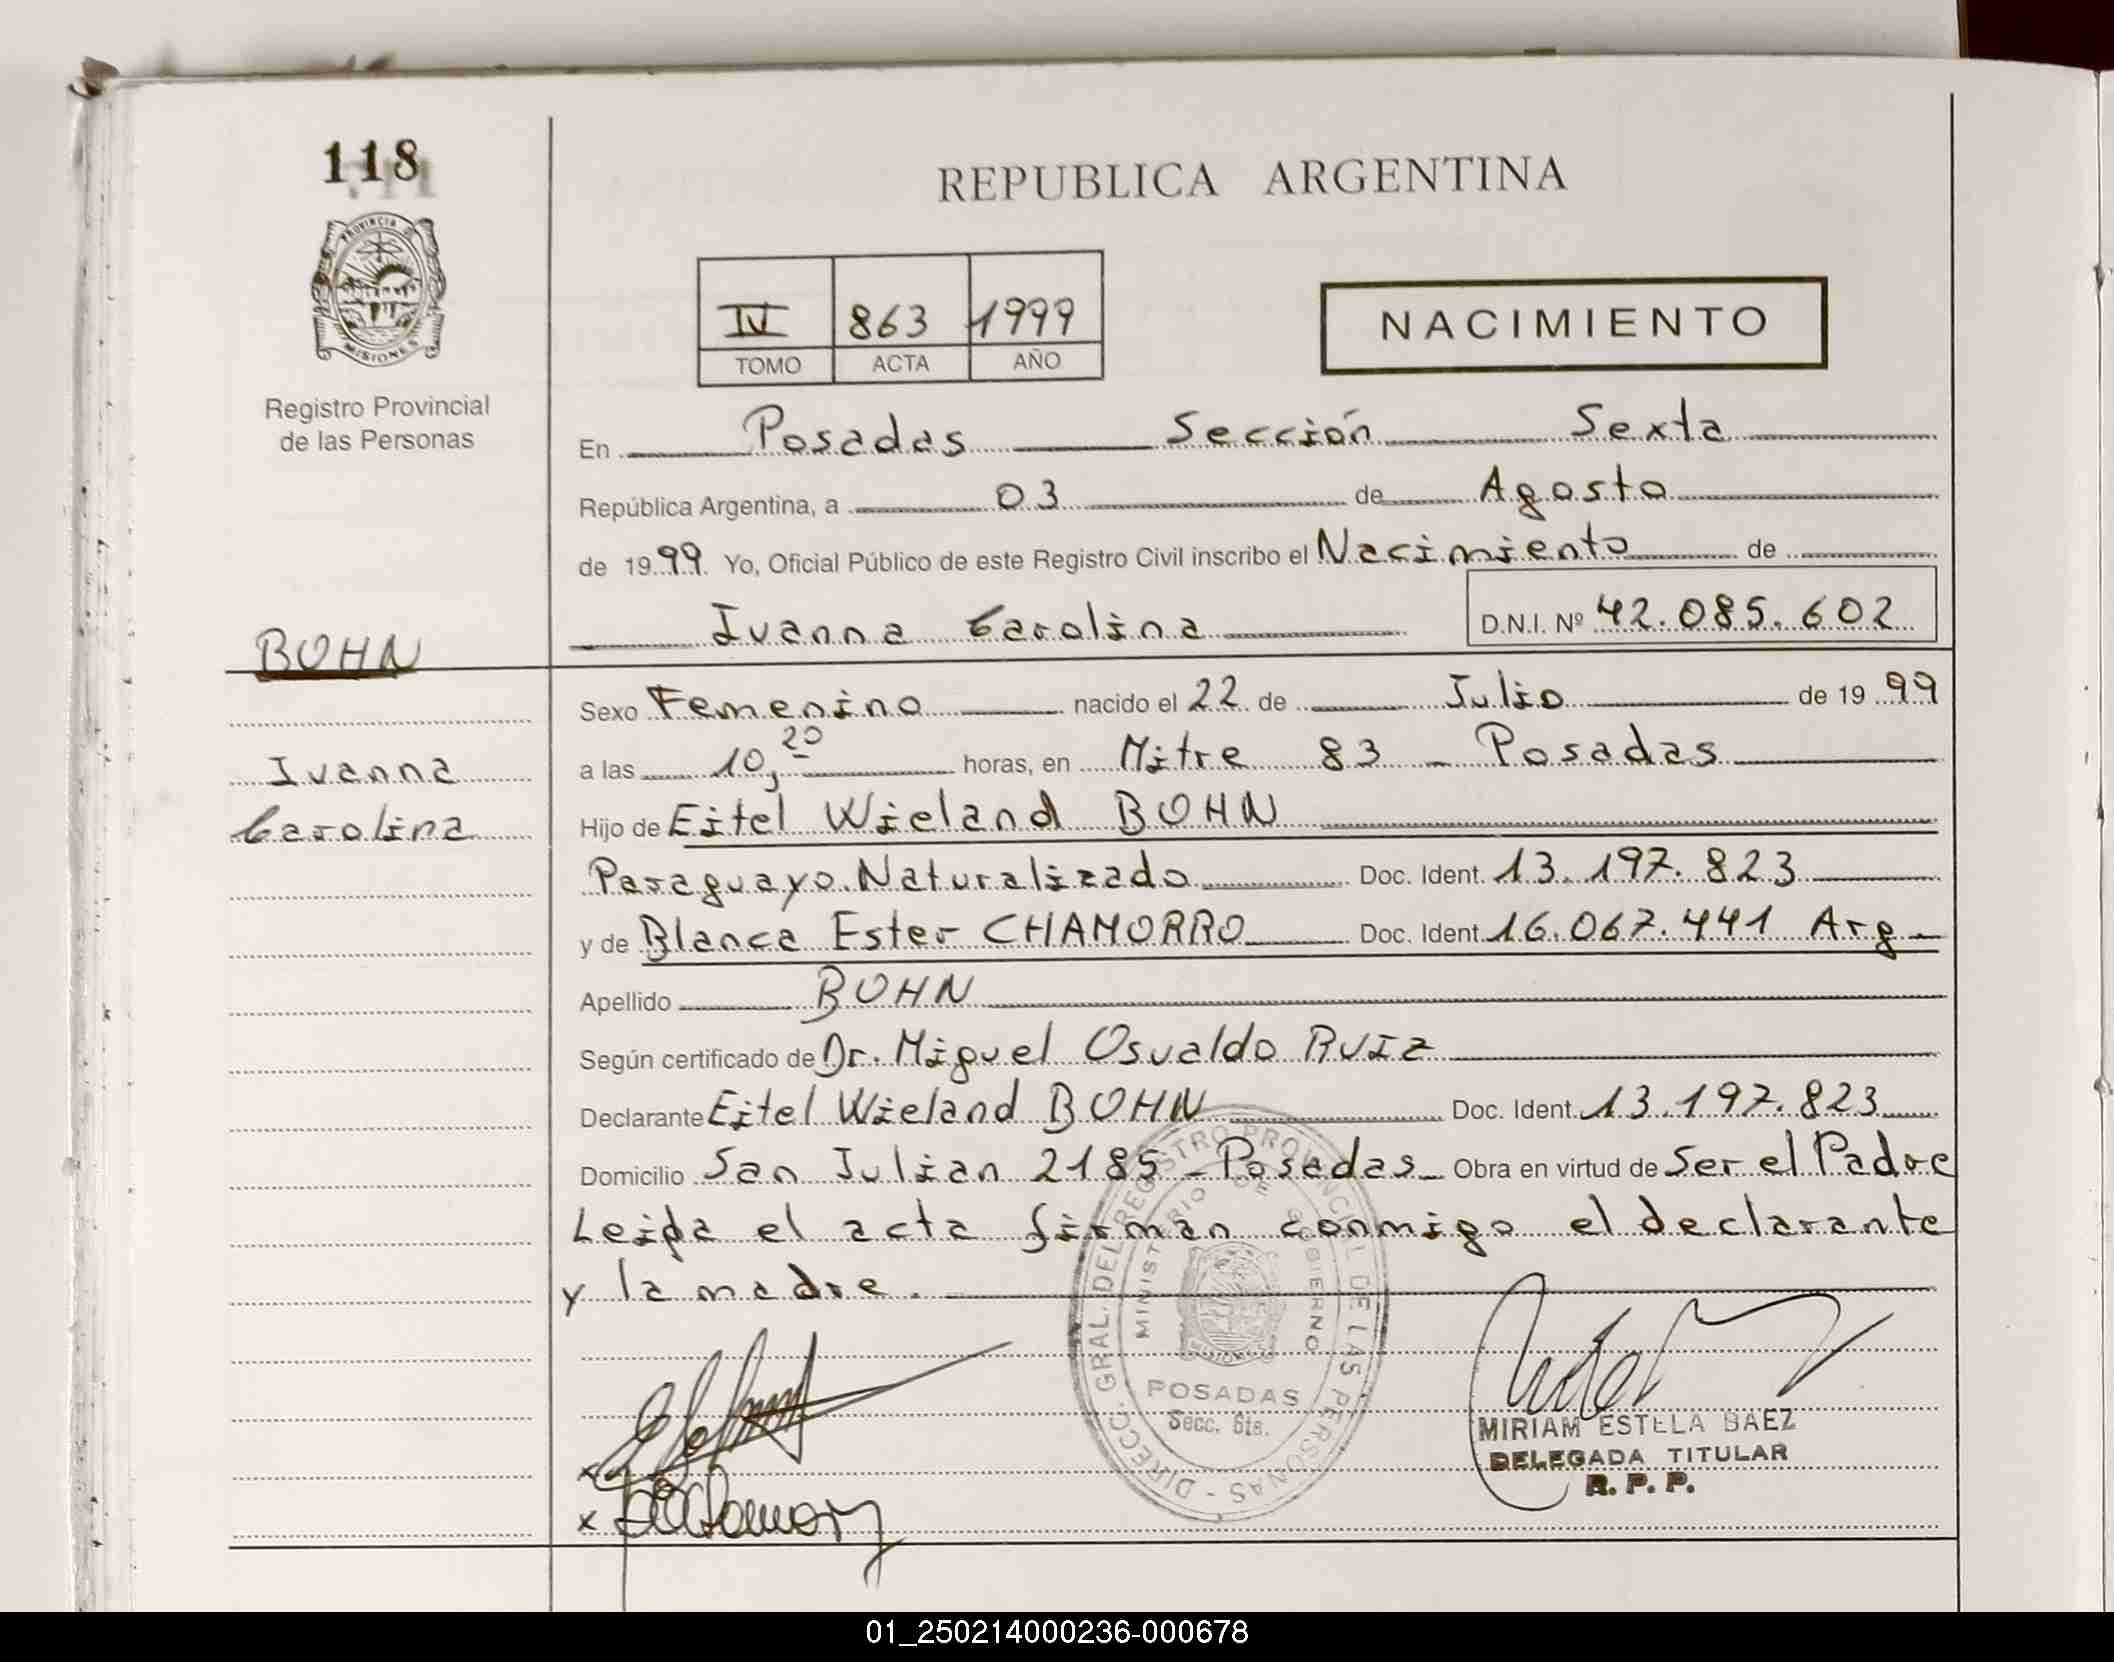 118
PROVINCIA DE
MISIONES
Registro Provincial
de las Personas
REPUBLICA ARGENTINA
IV 863 1999
TOMO ACTA AÑO
NACIMIENTO
En Posadas Sección Sexta
República Argentina, a 03 de Agosto
de 1999 Yo, Oficial Público de este Registro Civil inscribo el Nacimiento de
Ivanna Carolina D.N.I. Nº 42.085.602
BOHN
Ivanna
Carolina
Sexo Femenino nacido el 22 de Julio de 1999
a las 10,20 horas, en Mitre 83 - Posadas
Hijo de Eitel Wieland BOHN
Paraguayo Naturalizado Doc. Ident. 13.197.823
y de Blanca Ester CHAMORRO Doc. Ident. 16.067.441 Arg.
Apellido BOHN
Según certificado de Dr. Miguel Osvaldo RUIZ
Declarante Eitel Wieland BOHN Doc. Ident. 13.197.823
Domicilio San Julian 2185 - Posadas - Obra en virtud de Ser el Padre
Leida el acta firman conmigo el declarante
y la madre.
DIRECC. GRAL. DEL REGISTRO PROVINCIAL DE LAS PERSONAS -
MINISTERIO DE GOBIERNO
MISIONES
POSADAS
Secc. 6ta.
MIRIAM ESTELA BAEZ
DELEGADA TITULAR
R. P. P.
x
x
01_250214000236-000678